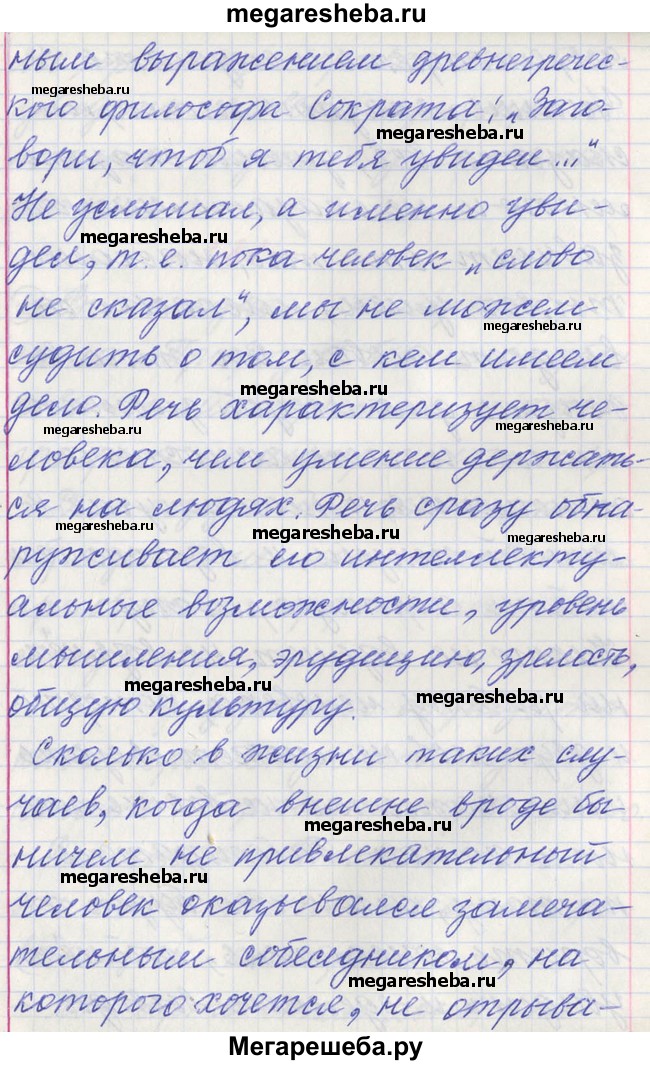 megaresheba.ru
ным выражением древнегречес-
megaresheba.ru
кого философа Сократа: „Заго-
megaresheba.ru
вори, чтоб я тебя увидел..."
Не услышал, а именно уви-
megaresheba.ru
дел, т. е. пока человек „слово
не сказал", мы не можем
megaresheba.ru
судить о том, с кем имеем
megaresheba.ru
дело. Речь характеризует че-
megaresheba.ru
megaresheba.ru
ловека, чем умение держать-
ся на людях. Речь сразу обна-
megaresheba.ru
megaresheba.ru
megaresheba.ru
руживает его интеллекту-
альные возможности, уровень
мышления, эрудицию, зрелость,
megaresheba.ru
megaresheba.ru
общую культуру.
Сколько в жизни таких слу-
чаев, когда внешне вроде бы
megaresheba.ru
ничем не привлекательный
megaresheba.ru
человек оказывался замеча-
тельным собеседником, на
megaresheba.ru
которого хочется, не отрыва-
Мегарешеба.ру